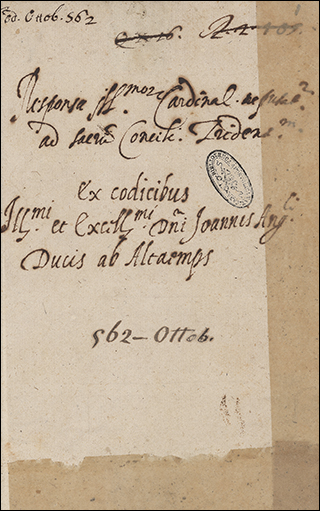 Cod. Ottob. 562
Responsa Ill.mor Cardinal.
ad sacrũ Concili. Trident.
Ex codicibus
Ill.mi et Excell.mi Dñi Joannis Ang.li
Ducis ab Altaemps
562 - Ottob.